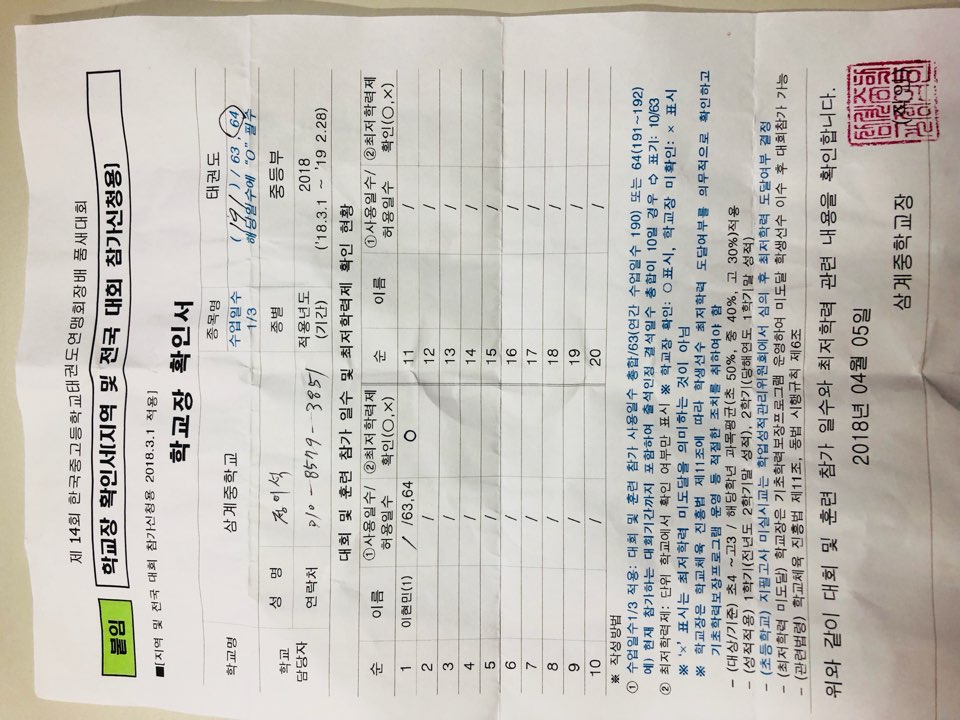 제 14회 한국중고등학교태권도연맹회장배 품새대회
붙임 학교장 확인서(지역 및 전국 대회 참가신청용)
■[지역 및 전국 대회 참가신청용 2018.3.1 적용]
학교장 확인서
학교명 삼계중학교 종목명 태권도
수업일수 1/3 (191) / 63, 64
해당일수에 "O" 필수
학교 담당자 성 명 정이석 종별 중등부
연락처 010-8579-3851 적용년도 (기간) 2018 ('18.3.1 ~ '19 2.28)
대회 및 훈련 참가 일수 및 최저학력제 확인 현황
순 이름 ①사용일수/허용일수 ②최저학력제 확인(○,×) 순 이름 ①사용일수/허용일수 ②최저학력제 확인(○,×)
1 이현민(1) / /63,64 ○ 11 /
2 / 12 /
3 / 13 /
4 / 14 /
5 / 15 /
6 / 16 /
7 / 17 /
8 / 18 /
9 / 19 /
10 / 20 /
※ 작성방법
① 수업일수1/3 적용: 대회 및 훈련 참가 사용일수 총합/63(연간 수업일수 190) 또는 64(191~192)
예) 현재 참가하는 대회기간까지 포함하여 출석인정 결석일수 총합이 10일 경우 ⇨ 표기: 10/63
② 최저학력제: 단위 학교에서 확인 여부만 표시 ※ 학교장 확인: ○표시, 학교장 미확인: × 표시
※ '×' 표시는 최저학력 미도달을 의미하는 것이 아님
※ 학교장은 학교체육 진흥법 제11조에 따라 학생선수 최저학력 도달여부를 의무적으로 확인하고
기초학력보장프로그램 운영 등 적절한 조치를 취하여야 함
- (대상/기준) 초4 ~고3 / 해당학년 과목평균(초 50%, 중 40%, 고 30%)적용
- (성적적용) 1학기(전년도 2학기말 성적), 2학기(당해연도 1학기말 성적)
- (초등학교) 지필고사 미실시교는 학업성적관리위원회에서 심의 후 최저학력 도달여부 결정
- (최저학력 미도달) 학교장은 기초학력보장프로그램 운영하여 미도달 학생선수 이수 후 대회참가 가능
- (관련법령) 학교체육 진흥법 제11조, 동법 시행규칙 제6조
위와 같이 대회 및 훈련 참가 일수와 최저학력 관련 내용을 확인합니다.
2018년 04월 05일
삼계중학교장 (직인)